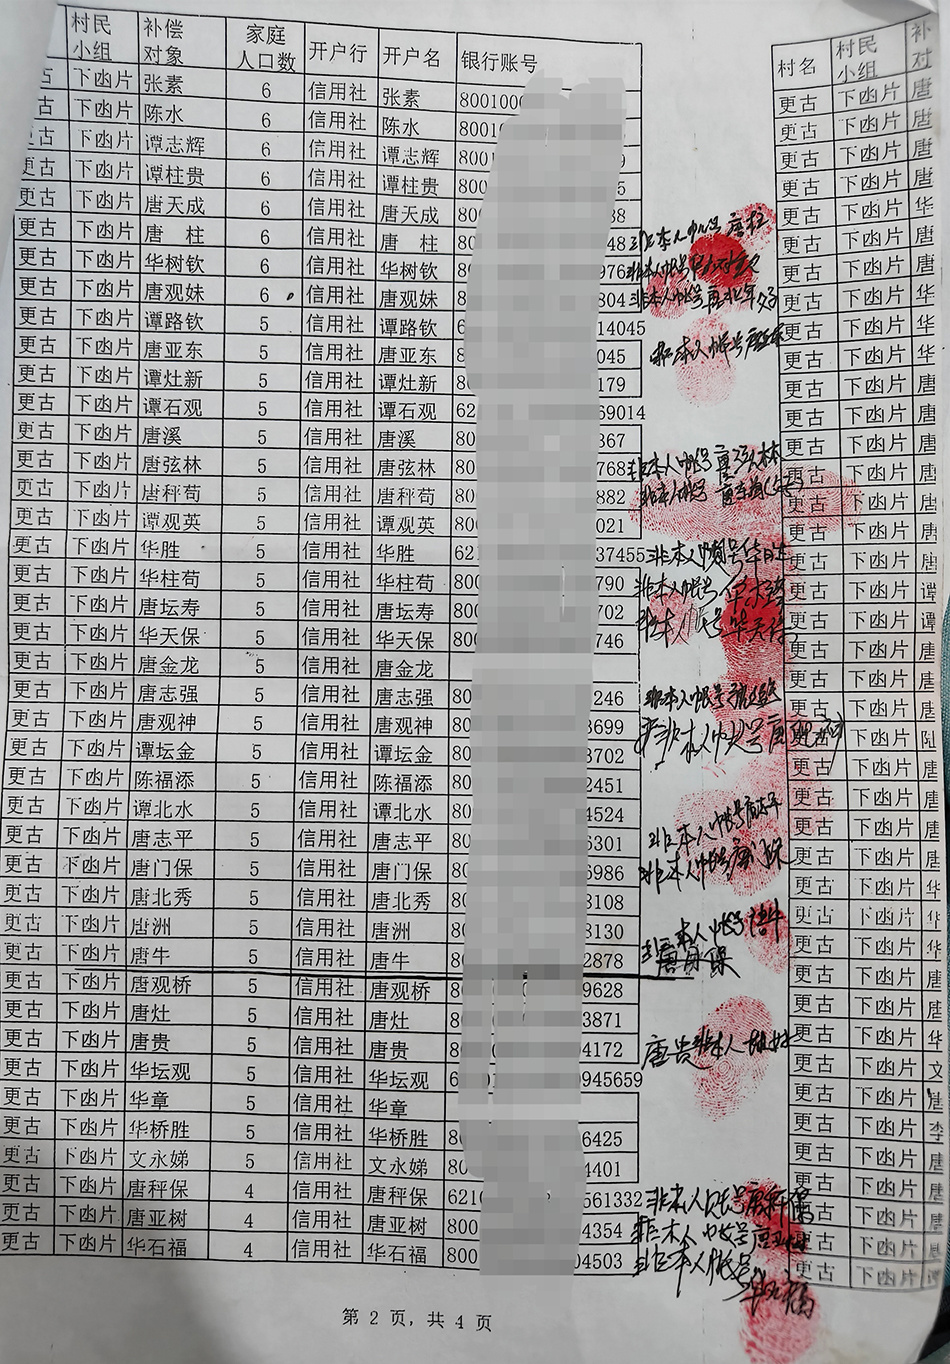 村民小组 补偿对象 家庭人口数 开户行 开户名 银行账号 村名 村民小组 补对
下凼片 张素 6 信用社 张素 800100 更古 下凼片 唐
古 下凼片 陈水 6 信用社 陈水 8001 更古 下凼片 唐
更古 下凼片 谭志辉 6 信用社 谭志辉 800 9 更古 下凼片 唐
更古 下凼片 谭柱贵 6 信用社 谭柱贵 800 5 更古 下凼片 唐
更古 下凼片 唐天成 6 信用社 唐天成 80 38 更古 下凼片 华
更古 下凼片 唐 柱 6 信用社 唐 柱 80 48 非本人帐号 唐柱 更古 下凼片 唐
更古 下凼片 华树钦 6 信用社 华树钦 8 976 非本人帐号 更古 下凼片 华
更古 下凼片 唐观妹 6 信用社 唐观妹 80 804 非本人帐号 更古 下凼片 华
更古 下凼片 谭路钦 5 信用社 谭路钦 6 14045 更古 下凼片 华
更古 下凼片 唐亚东 5 信用社 唐亚东 80 045 非本人帐号 唐亚东 更古 下凼片 华
更古 下凼片 谭灶新 5 信用社 谭灶新 80 179 更古 下凼片 唐
更古 下凼片 谭石观 5 信用社 谭石观 62 69014 更古 下凼片 唐
更古 下凼片 唐溪 5 信用社 唐溪 80 367 更古 下凼片 唐
更古 下凼片 唐弦林 5 信用社 唐弦林 80 768 非本人帐号 唐弦林 更古 下凼片 唐
更古 下凼片 唐秤苟 5 信用社 唐秤苟 80 882 非本人帐号 更古 下凼片 唐
更古 下凼片 谭观英 5 信用社 谭观英 80 021 更古 下凼片 唐
更古 下凼片 华胜 5 信用社 华胜 621 37455 非本人帐号 华胜 更古 下凼片 唐
更古 下凼片 华柱苟 5 信用社 华柱苟 800 790 非本人帐号 更古 下凼片 谭
更古 下凼片 唐坛寿 5 信用社 唐坛寿 800 702 更古 下凼片 谭
更古 下凼片 华天保 5 信用社 华天保 800 746 非本人帐号 华天保 更古 下凼片 唐
更古 下凼片 唐金龙 5 信用社 唐金龙 更古 下凼片 唐
更古 下凼片 唐志强 5 信用社 唐志强 80 246 非本人帐号 更古 下凼片 唐
更古 下凼片 唐观神 5 信用社 唐观神 80 8699 非本人帐号 唐观神 更古 下凼片
更古 下凼片 谭坛金 5 信用社 谭坛金 80 3702 更古 下凼片 唐
更古 下凼片 陈福添 5 信用社 陈福添 80 2451 更古 下凼片 唐
更古 下凼片 谭北水 5 信用社 谭北水 80 4524 更古 下凼片 唐
更古 下凼片 唐志平 5 信用社 唐志平 80 6301 非本人帐号 唐志平 更古 下凼片 唐
更古 下凼片 唐门保 5 信用社 唐门保 80 6986 非本人帐号 唐门保 更古 下凼片 华
更古 下凼片 唐北秀 5 信用社 唐北秀 80 3108 更古 下凼片 华
更古 下凼片 唐洲 5 信用社 唐洲 80 3130 更古 下凼片 华
更古 下凼片 唐牛 5 信用社 唐牛 80 2878 非本人帐号 唐牛 更古 下凼片 唐
更古 下凼片 唐观桥 5 信用社 唐观桥 80 9628 更古 下凼片 唐
更古 下凼片 唐灶 5 信用社 唐灶 8 3871 更古 下凼片 华
更古 下凼片 唐贵 5 信用社 唐贵 80 4172 唐贵非本人 更古 下凼片 文
更古 下凼片 华坛观 5 信用社 华坛观 6 945659 更古 下凼片 唐
更古 下凼片 华章 5 信用社 华章 更古 下凼片 李
更古 下凼片 华桥胜 5 信用社 华桥胜 80 6425 更古 下凼片 唐
更古 下凼片 文永娣 5 信用社 文永娣 80 4401 更古 下凼片 唐
更古 下凼片 唐秤保 4 信用社 唐秤保 6210 561332 非本人帐号 更古 下凼片 唐
更古 下凼片 唐亚树 4 信用社 唐亚树 800 4354 非本人帐号 唐亚树 更古 下凼片 唐
更古 下凼片 华石福 4 信用社 华石福 800 04503 非本人帐号 华石福 更古 下凼片 谭
第 2 页, 共 4 页